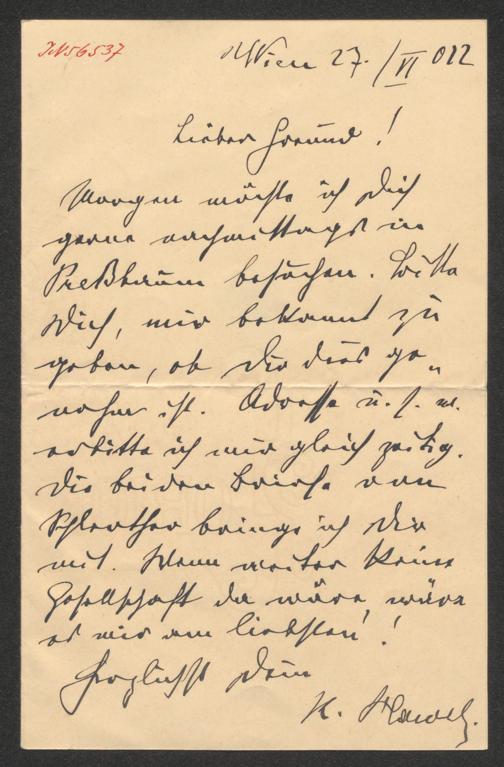 IN 56537
Wien 27./VI 012
Lieber Freund!
Morgen möchte ich Dich
gerne nachmittags in
Preßbaum besuchen. Bitte
Dich, mir bekannt zu
geben, ob Dir dies ge„
nehm ist. Adresse u. s. w.
erbitte ich mir gleichzeitig.
Die beiden Briefe von
bringe ich Dir
mit. Wenn weiter keine
Gesellschaft da wäre, wäre
es mir am liebsten!
Herzlichst Dein
K.